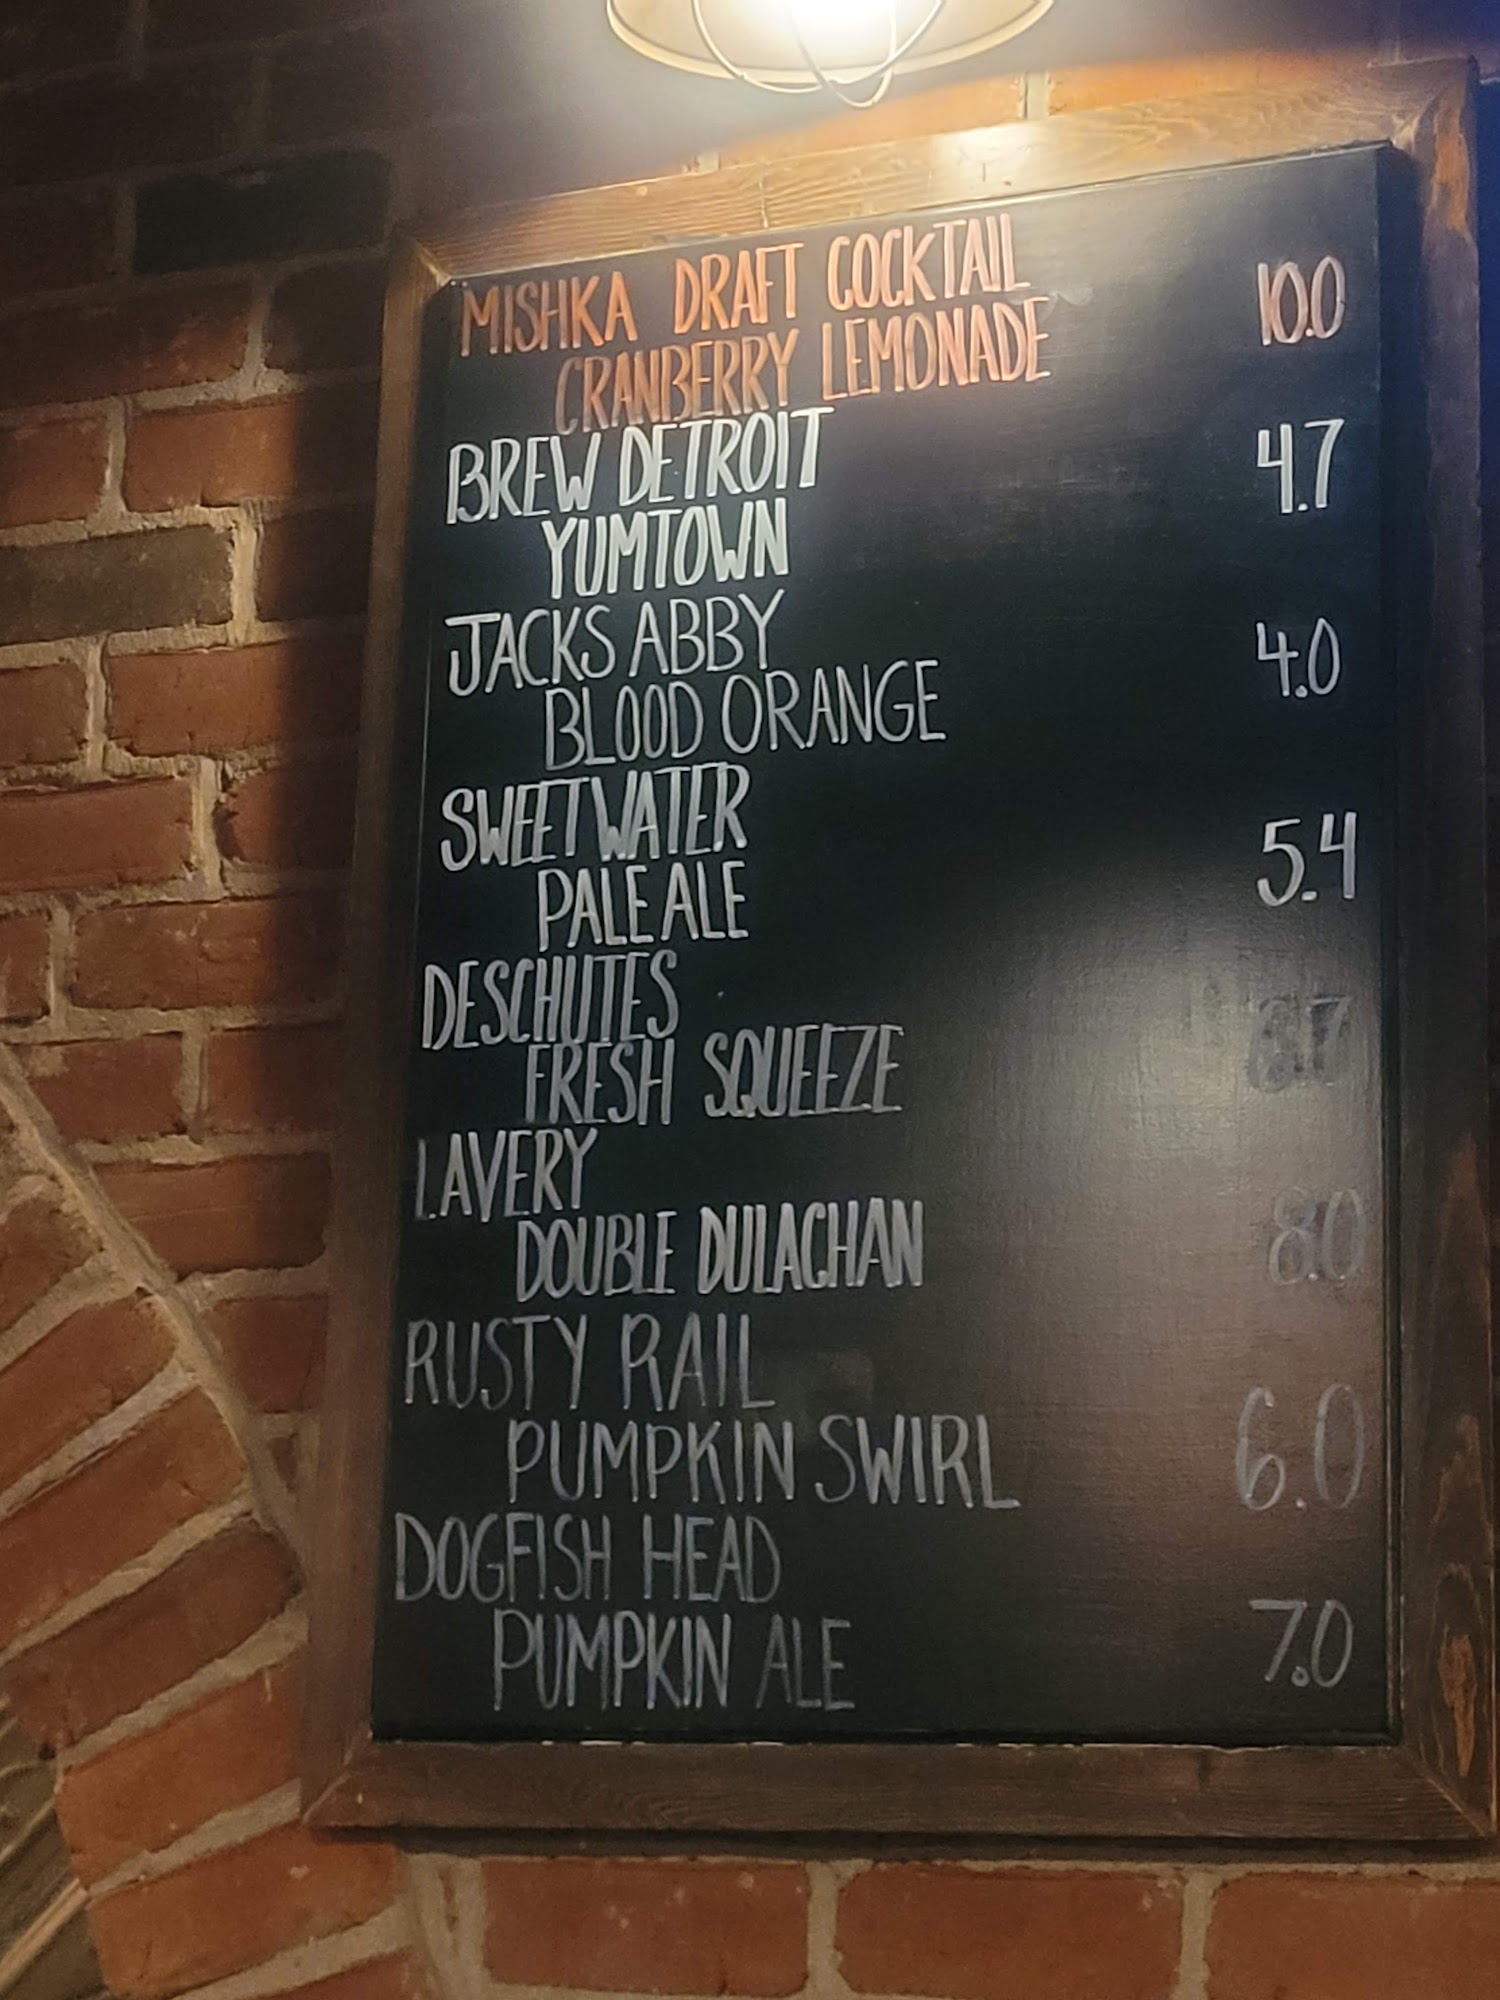 MISHKA DRAFT COCKTAIL 10.0
CRANBERRY LEMONADE
BREW DETROIT 4.7
YUMTOWN
JACKS ABBY 4.0
BLOOD ORANGE
SWEETWATER 5.4
PALE ALE
DESCHUTES
FRESH SQUEEZE
LAVERY
DOUBLE DULACHAN 8.0
RUSTY RAIL
PUMPKIN SWIRL 6.0
DOGFISH HEAD
PUMPKIN ALE 7.0